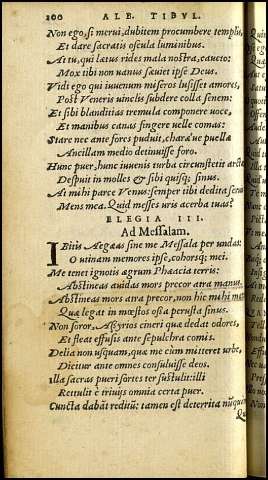 200 ALB. TIBVL.
Non ego, si merui, dubitem procumbere templis,
Et dare sacratis oscula luminibus.
At tu, qui lætus rides mala nostra, caueto:
Mox tibi non uanus sæuiet ipse Deus.
Vidi ego qui iuuenum miseros lusisset amores,
Post Veneris uinclis subdere colla senem:
Et sibi blanditias tremula componere uoce,
Et manibus canas fingere uelle comas:
Stare nec ante fores puduit, charæue puellæ
Ancillam medio detinuisse foro.
Hunc puer, hunc iuuenis turba circunstetit arcta,
Despuit in molles & sibi quisq; sinus.
At mihi parce Venus: semper tibi dedita seruit
Mens mea. Quid messes uris acerba tuas?
ELEGIA III.
Ad Messalam.
IBitis Aegæas sine me Messala per undas:
O utinam memores ipse, cohorsq; mei.
Me tenet ignotis ægrum Phæacia terris:
Abstineas auidas mors precor atra manus.
Abstineas mors atra precor, non hic mihi mater
Quæ legat in mœstos ossa perusta sinus.
Non soror, Assyrios cineri quæ dedat odores,
Et fleat effusis ante sepulchra comis.
Delia non usquam, quæ me cum mitteret urbe,
Dicitur ante omnes consuluisse deos.
Illa sacras pueri sortes ter sustulit: illi
Rettulit è triuijs omnia certa puer.
Cuncta dabāt reditū: tamen est deterrita nūquam